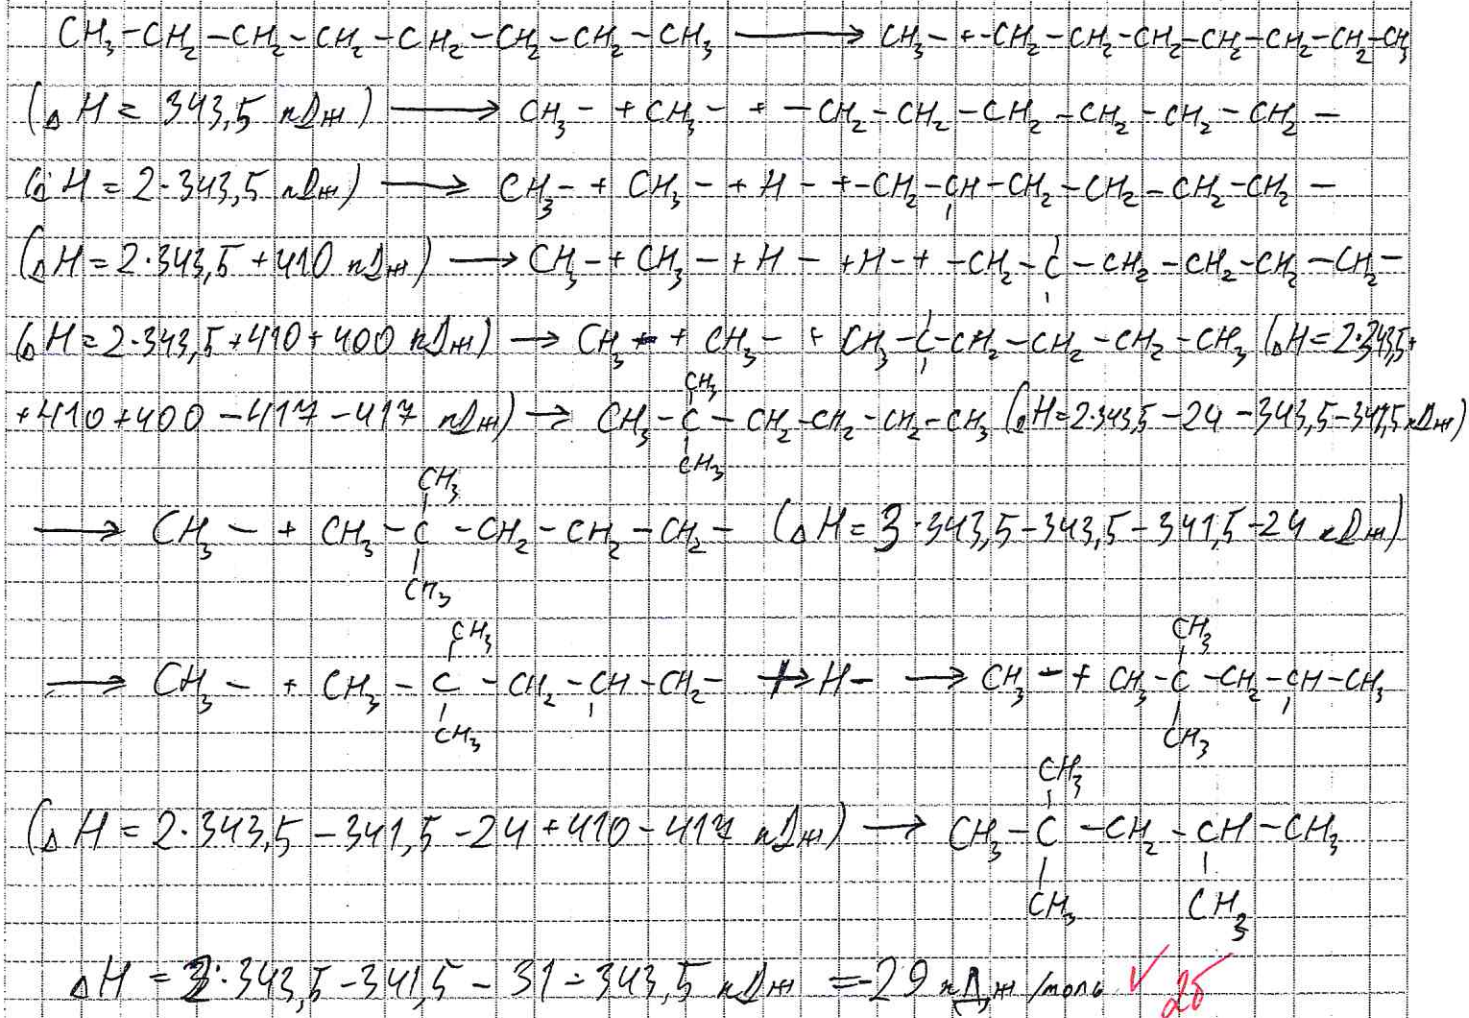 CH₃-CH₂-CH₂-CH₂-CH₂-CH₂-CH₂-CH₃ → CH₃- + -CH₂-CH₂-CH₂-CH₂-CH₂-CH₂-CH₃
(ΔH = 343,5 кДж) → CH₃- + CH₃- + -CH₂-CH₂-CH₂-CH₂-CH₂-CH₂-
(ΔH = 2·343,5 кДж) → CH₃- + CH₃- + H- + -CH₂-CH-CH₂-CH₂-CH₂-CH₂-
(ΔH = 2·343,5 + 410 кДж) → CH₃- + CH₃- + H- + H- + -CH₂-C-CH₂-CH₂-CH₂-CH₂-
(ΔH = 2·343,5 + 410 + 400 кДж) → CH₃- + CH₃- + CH₃-C-CH₂-CH₂-CH₂-CH₃ (ΔH = 2·343,5 +
CH₃
+410 + 400 - 417 - 417 кДж) → CH₃-C-CH₂-CH₂-CH₂-CH₃ (ΔH = 2·343,5 - 24 - 343,5 - 341,5 кДж)
CH₃
CH₃
→ CH₃- + CH₃-C-CH₂-CH₂-CH₂- (ΔH = 3·343,5 - 343,5 - 341,5 - 24 кДж)
CH₃
CH₃ CH₃
→ CH₃- + CH₃-C-CH₂-CH-CH₂- + H- → CH₃- + CH₃-C-CH₂-CH-CH₃
CH₃ CH₃
CH₃
(ΔH = 2·343,5 - 341,5 - 24 + 410 - 417 кДж) → CH₃-C-CH₂-CH-CH₃
CH₃ CH₃
ΔH = 2·343,5 - 341,5 - 31 - 343,5 кДж = -29 кДж/моль ✓ 2б